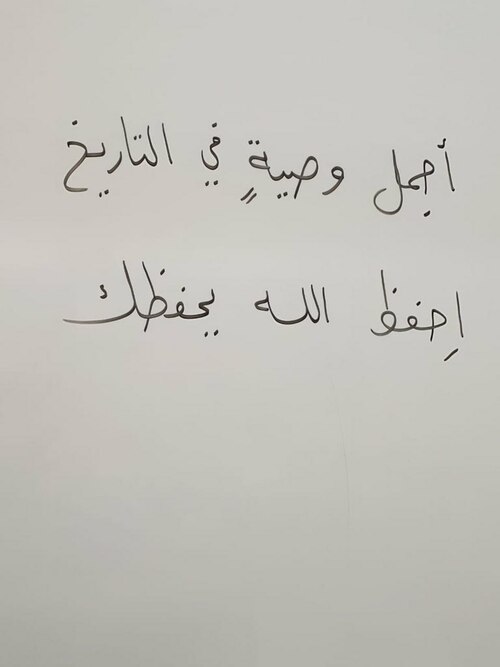 أجمل وصيةٍ في التاريخ
اِحفظ الله يحفظك